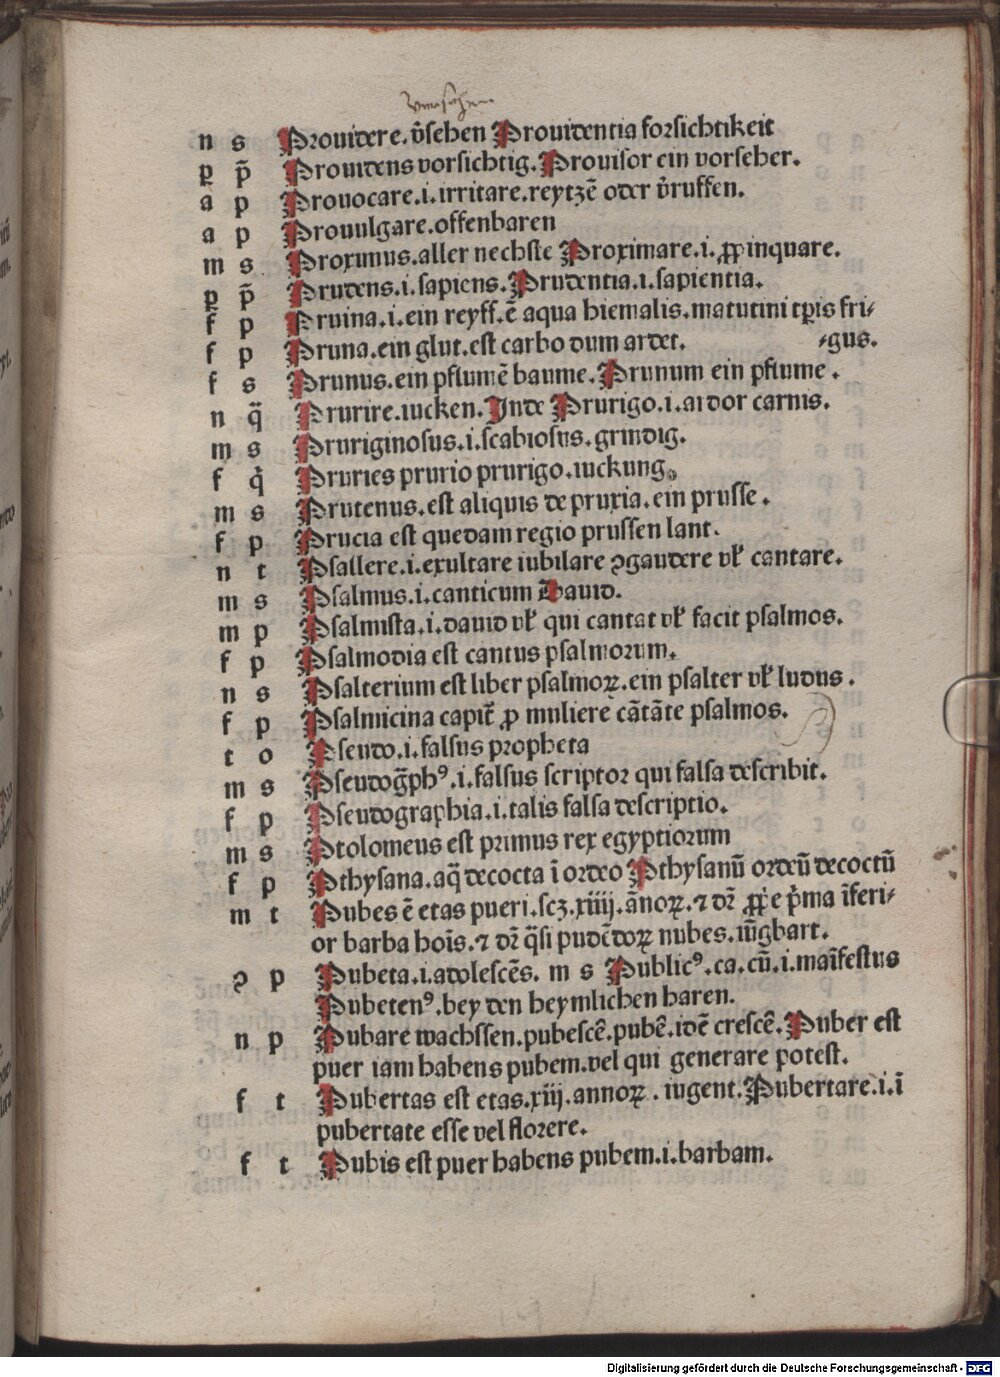 n s Prouidere. v̄sehen Prouidentia forsichtikeit
ꝑ p̄ Prouidens vorsichtig. Prouisor ein vorseher.
a p Prouocare .i. irritare. reytzē oder v̄ruffen.
a p Prouulgare. offenbaren
m s Proximus. aller nechste Proximare .i. ꝓpinquare.
ꝑ p̄ Prudens .i. sapiens. Prudentia .i. sapientia.
f p Pruina .i. ein reyff. ē aqua hiemalis. matutini tꝑis fri⸗
f p Pruna. ein glut. est carbo dum ardet. ⸗gus.
f s Prunus. ein pflumē baume. Prunum ein pflume.
n q̄ Prurire. iucken. Inde Prurigo .i. ardor carnis.
m s Pruriginosus .i. scabiosus. grindig.
f q̇ Pruries prurio prurigo. iuckung.
m s Prutenus. est aliquis de pruxia. ein prusse.
f p Prucia est quedam regio prussen lant.
n t Psallere .i. exultare iubilare ꝯgaudere vl̄ cantare.
m s Psalmus .i. canticum Dauid.
m p Psalmista .i. dauid vl̄ qui cantat vl̄ facit psalmos.
f p Psalmodia est cantus psalmorum.
n s Psalterium est liber psalmoꝝ. ein psalter vl̄ ludus.
f p Psalmicina capit̄ ꝓ muliere cātāte psalmos.
t o Pseudo .i. falsus propheta
m s Pseudog̃phꝰ .i. falsus scriptor qui falsa describit.
f p Pseudographia .i. talis falsa descriptio.
m s Ptolomeus est primus rex egyptiorum
f p Pthysana. aq̄ decocta ī ordeo Pthysanū ordeū decoctū
m t Pubes ē etas pueri. scꝫ. xiiij. ānoꝝ. ⁊ dr̄ ꝓpe p̄ma īferi⸗
or barba hoīs. ⁊ dr̄ q̄si pudēdoꝝ nubes. iūgbart.
ꝯ p Pubeta .i. adolescēs. m s Publicꝰ. ca. cū .i. maīfestus
Pubetenꝰ. bey den heymlichen haren.
n p Pubare wachssen. pubescē. pubē. idē crescē. Puber est
puer iam habens pubem. vel qui generare potest.
f t Pubertas est etas. xiij. annoꝝ. iugent. Pubertare .i. ī
pubertate esse vel florere.
f t Pubis est puer habens pubem .i. barbam.
Digitalisierung gefördert durch die Deutsche Forschungsgemeinschaft - DFG